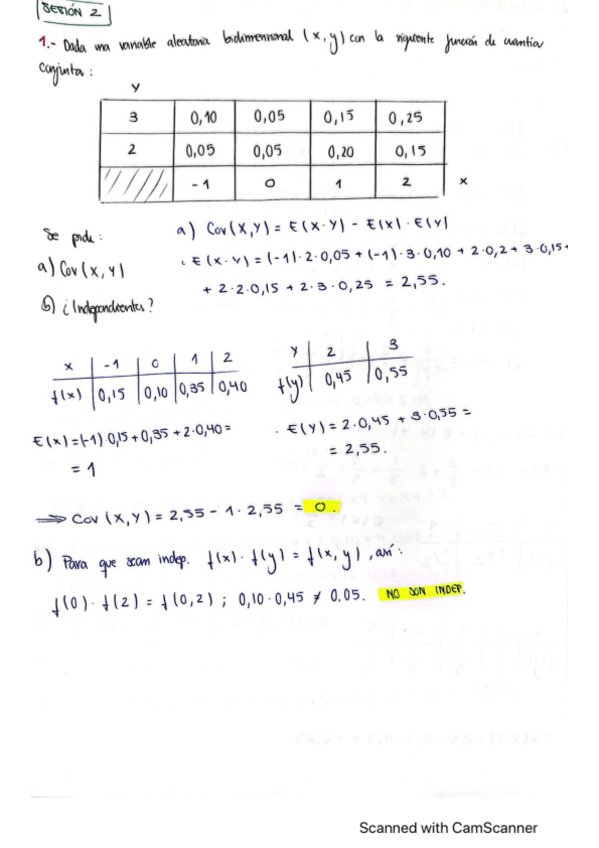 SESIÓN 2
1.- Dada una variable aleatoria bidimensional (x, y) con la siguiente función de cuantía
conjunta:
y
3 0,10 0,05 0,15 0,25
2 0,05 0,05 0,20 0,15
-1 0 1 2 x
Se pide:
a) Cov (x, y)
b) ¿Independientes?
a) Cov (X, Y) = E(X·Y) - E(X) · E(Y)
· E(X·Y) = (-1)·2·0,05 + (-1)·3·0,10 + 2·0,2 + 3·0,15+
+ 2·2·0,15 + 2·3·0,25 = 2,55.
x -1 0 1 2
f(x) 0,15 0,10 0,35 0,40
E(x) = (-1)·0,15 + 0,35 + 2·0,40 =
= 1
Y 2 3
f(y) 0,45 0,55
· E(Y) = 2·0,45 + 3·0,55 =
= 2,55.
⇒ Cov (X, Y) = 2,55 - 1·2,55 = 0.
b) Para que sean indep. f(x)·f(y) = f(x, y), así:
f(0)·f(2) = f(0,2) ; 0,10·0,45 ≠ 0.05. NO SON INDEP.
Scanned with CamScanner